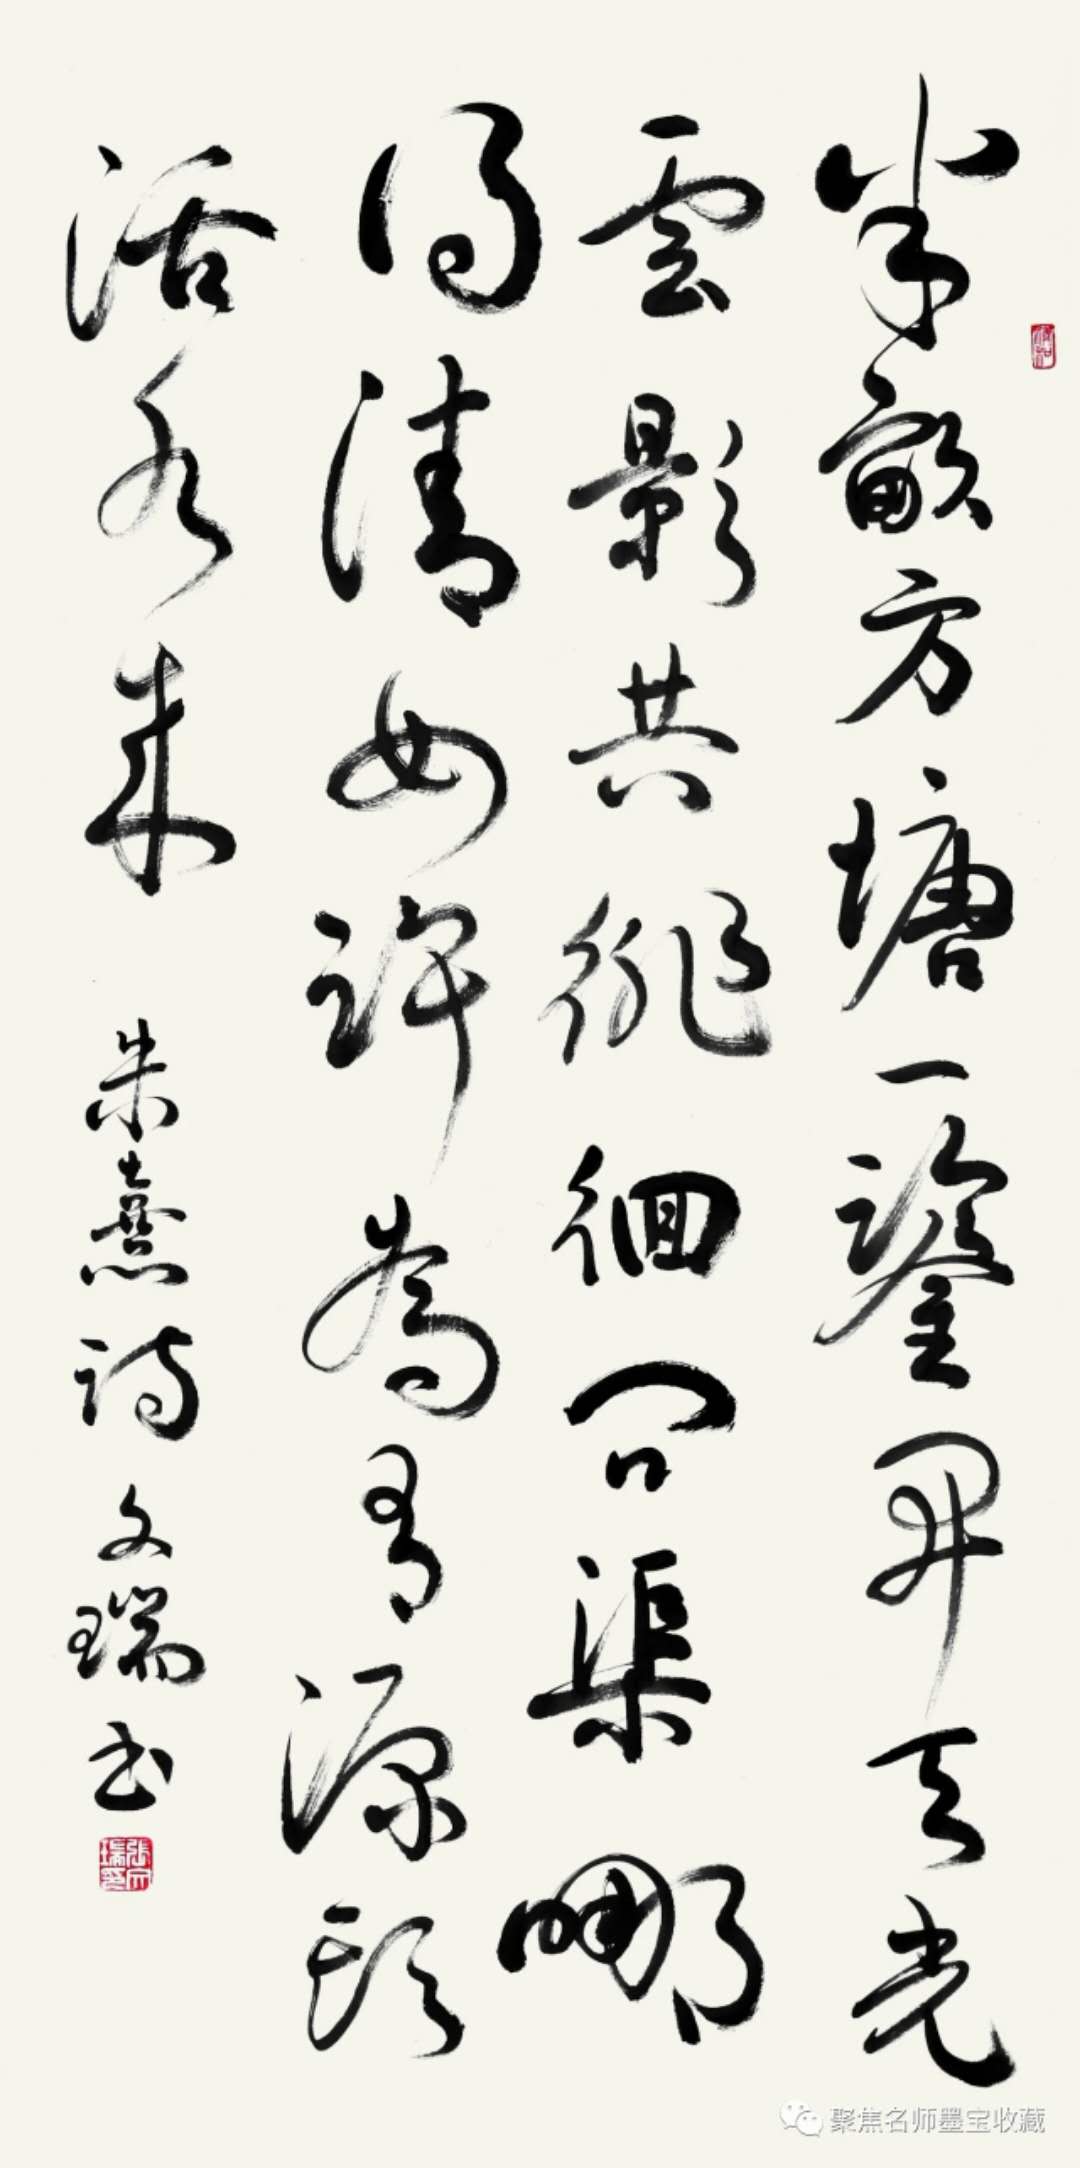 半畝方塘一鑒開天光
雲影共徘徊問渠哪
得清如許為有源頭
活水來
朱熹詩 文瑞書
張文瑞印
聚焦名师墨宝收藏